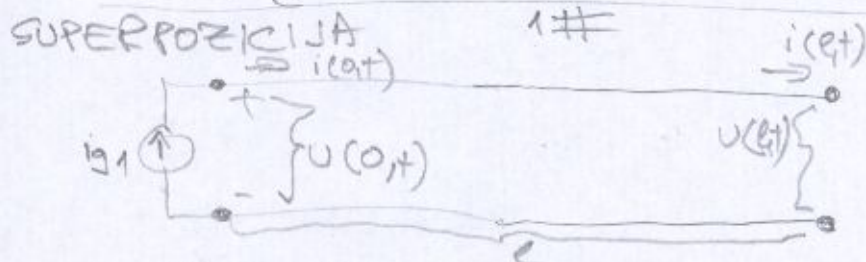 SUPERPOZICIJA 1#
i(0,t) i(l,t)
ig1 + U(0,t) U(l,t)
-
l